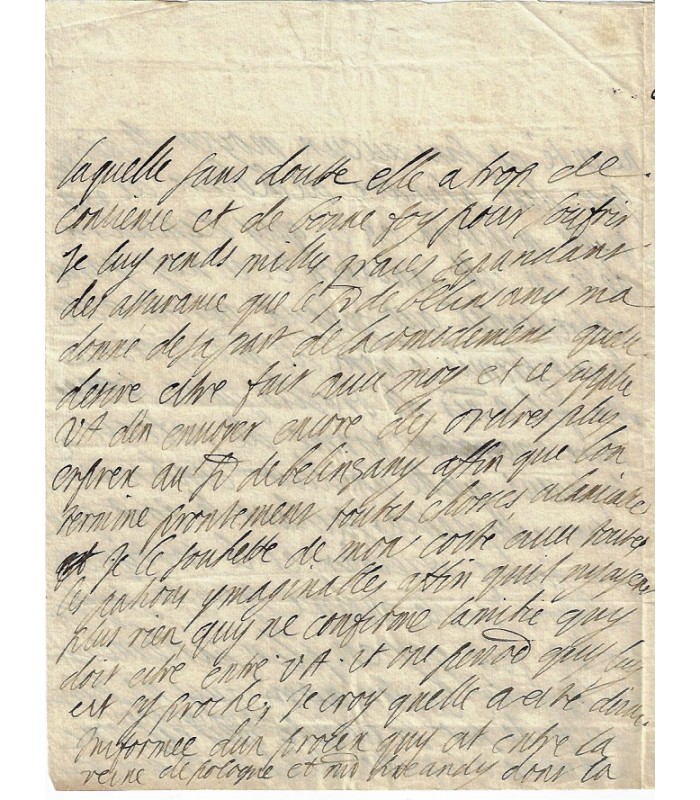 laquelle sans doutte elle a trop de
contience et de bonne foy pour soufrir
Je luy rends mille graces cepandant
des assurance que le de belinsany ma
donné de sa part de lacomodement quele
desire estre fait avec moy et ie suplie
VA den envoyer encore des ordres plus
expres au de belinzany affin que lon
termine prontement toutes choses a lamiable
et Je le souhette de mon costé avec toutes
les pations ymaginables affin quil ny ayent
plus rien quy ne confirme lamitié quy
doit estre entre VA et une quy luy
est sy proche, Je croy quelle a esté
Informee dun procex quy est entre la
reine de pologne et dont la